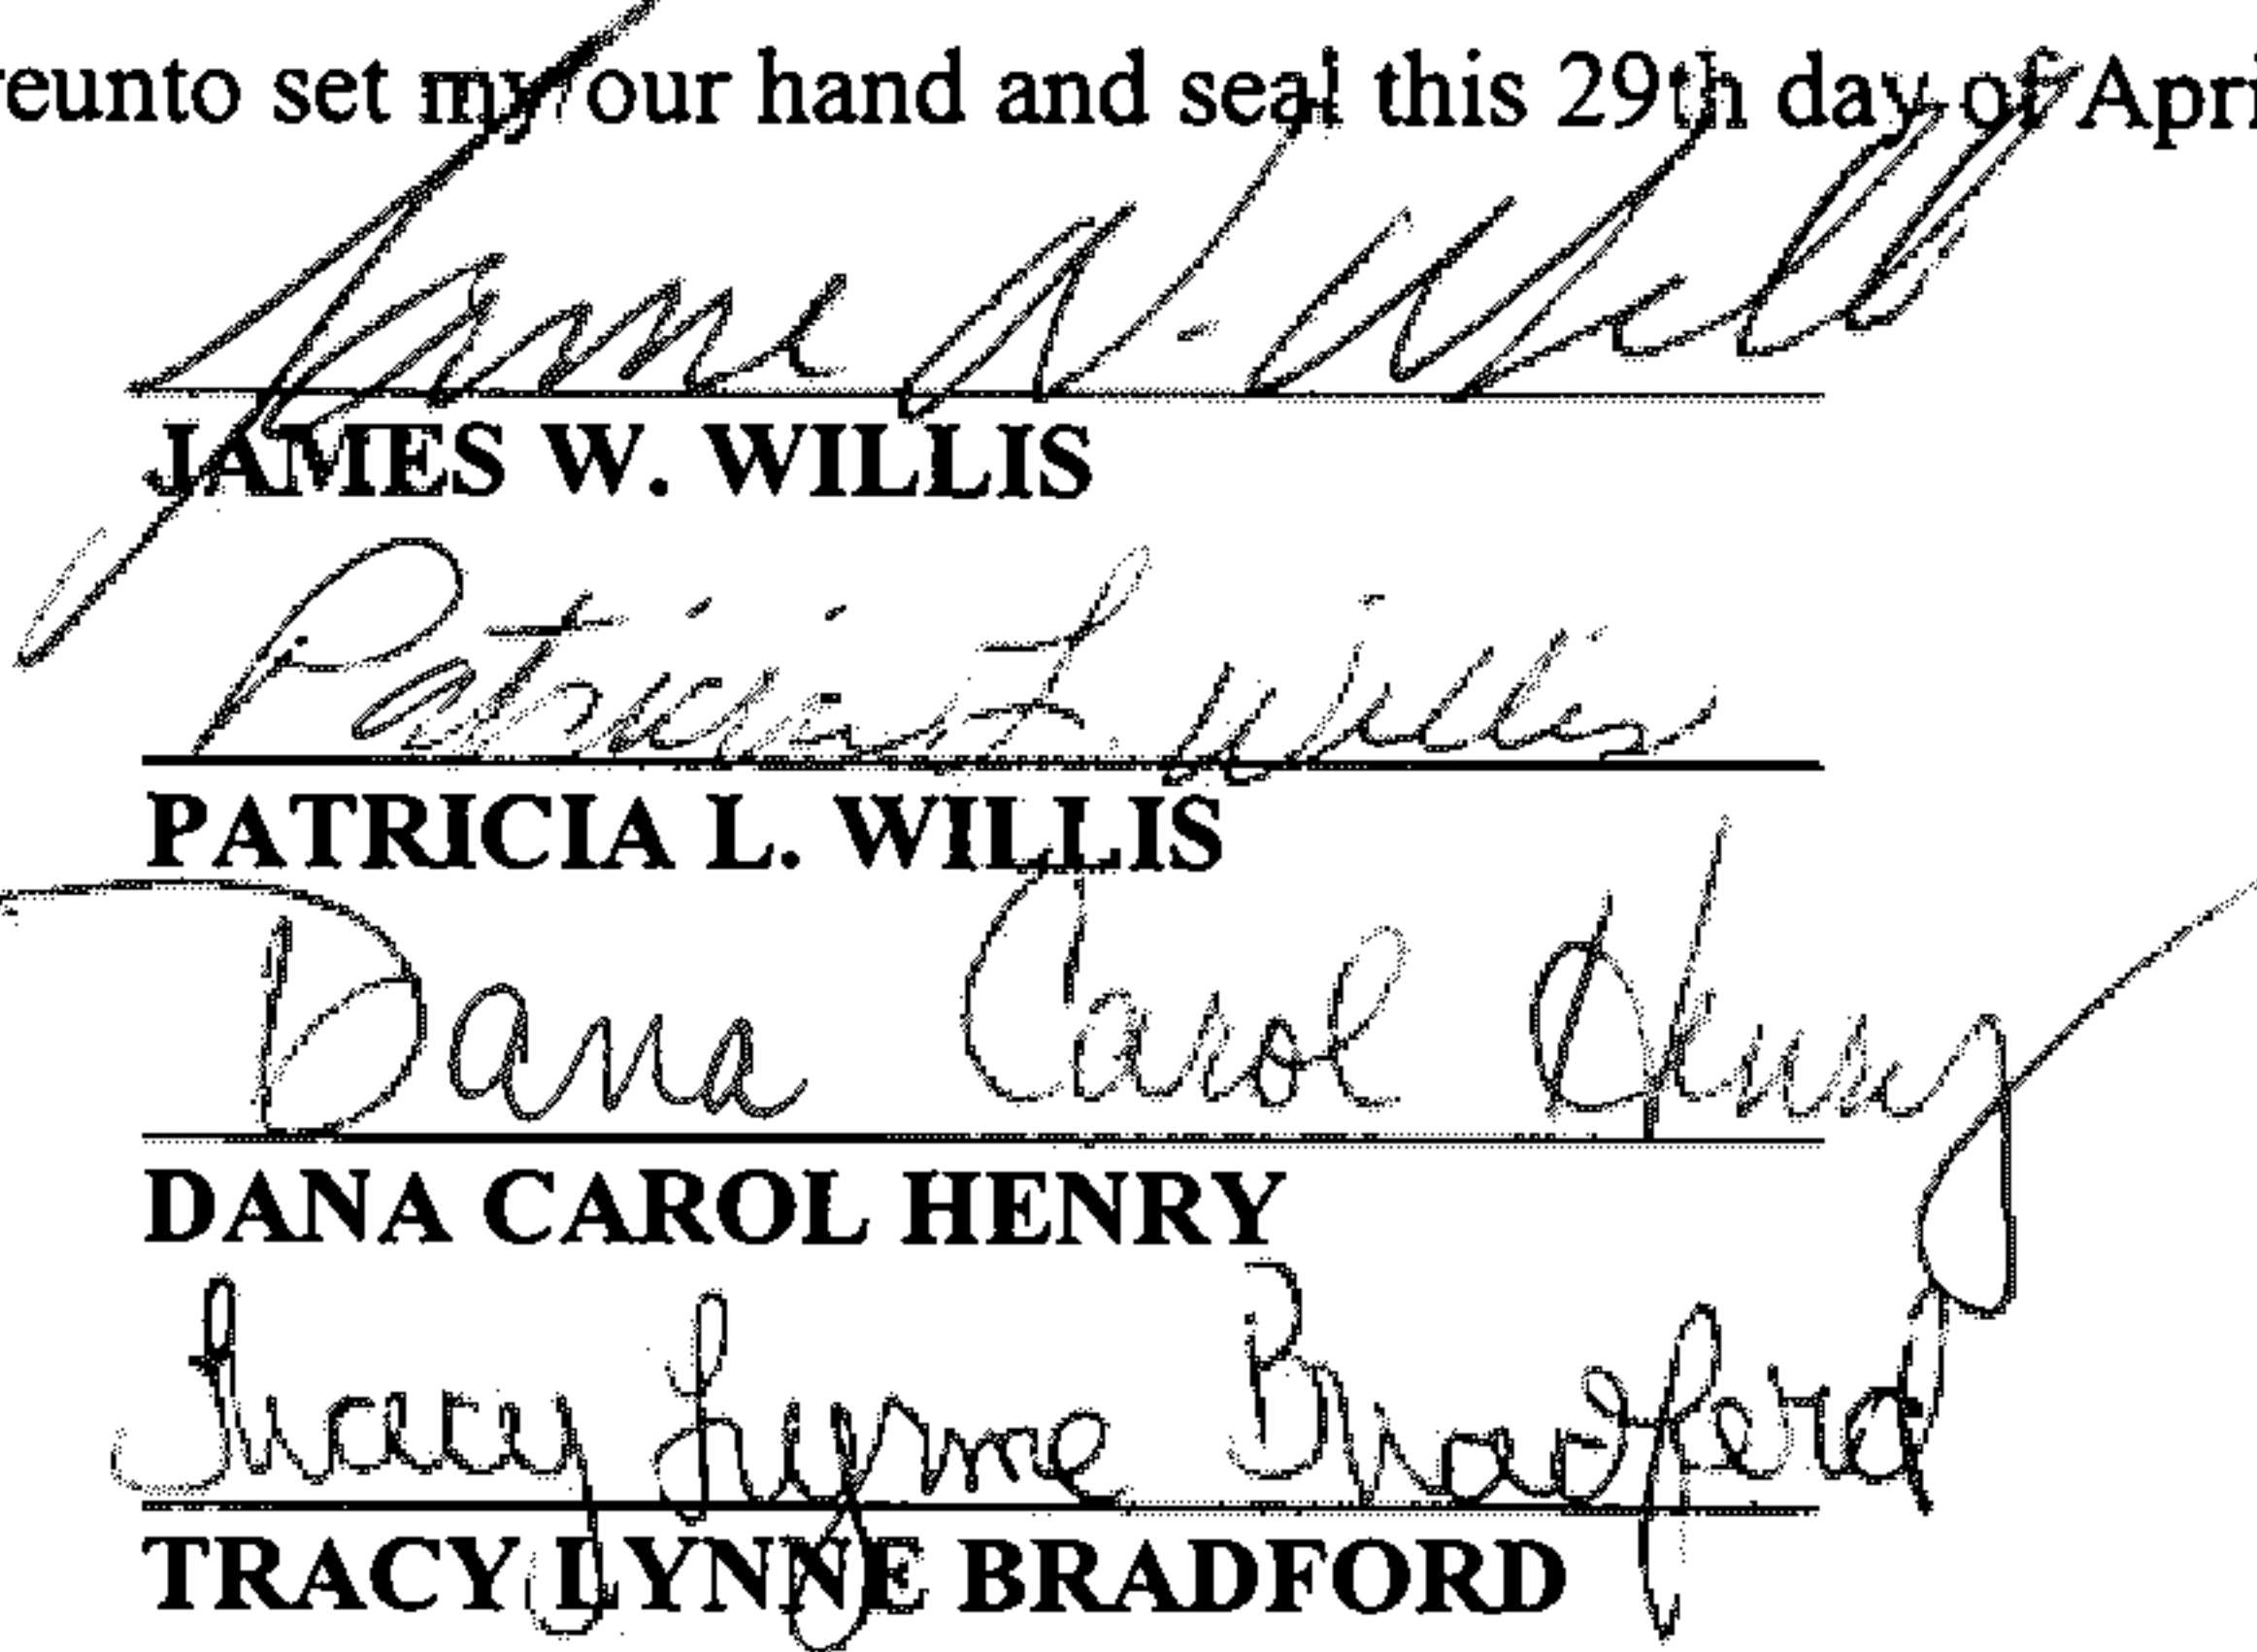 reunto set my our hand and seal this 29th day of Apri
James W. Willis
JAMES W. WILLIS
Patricia L Willis
PATRICIA L. WILLIS
Dana Carol Henry
DANA CAROL HENRY
Tracy Lynne Bradford
TRACY LYNNE BRADFORD